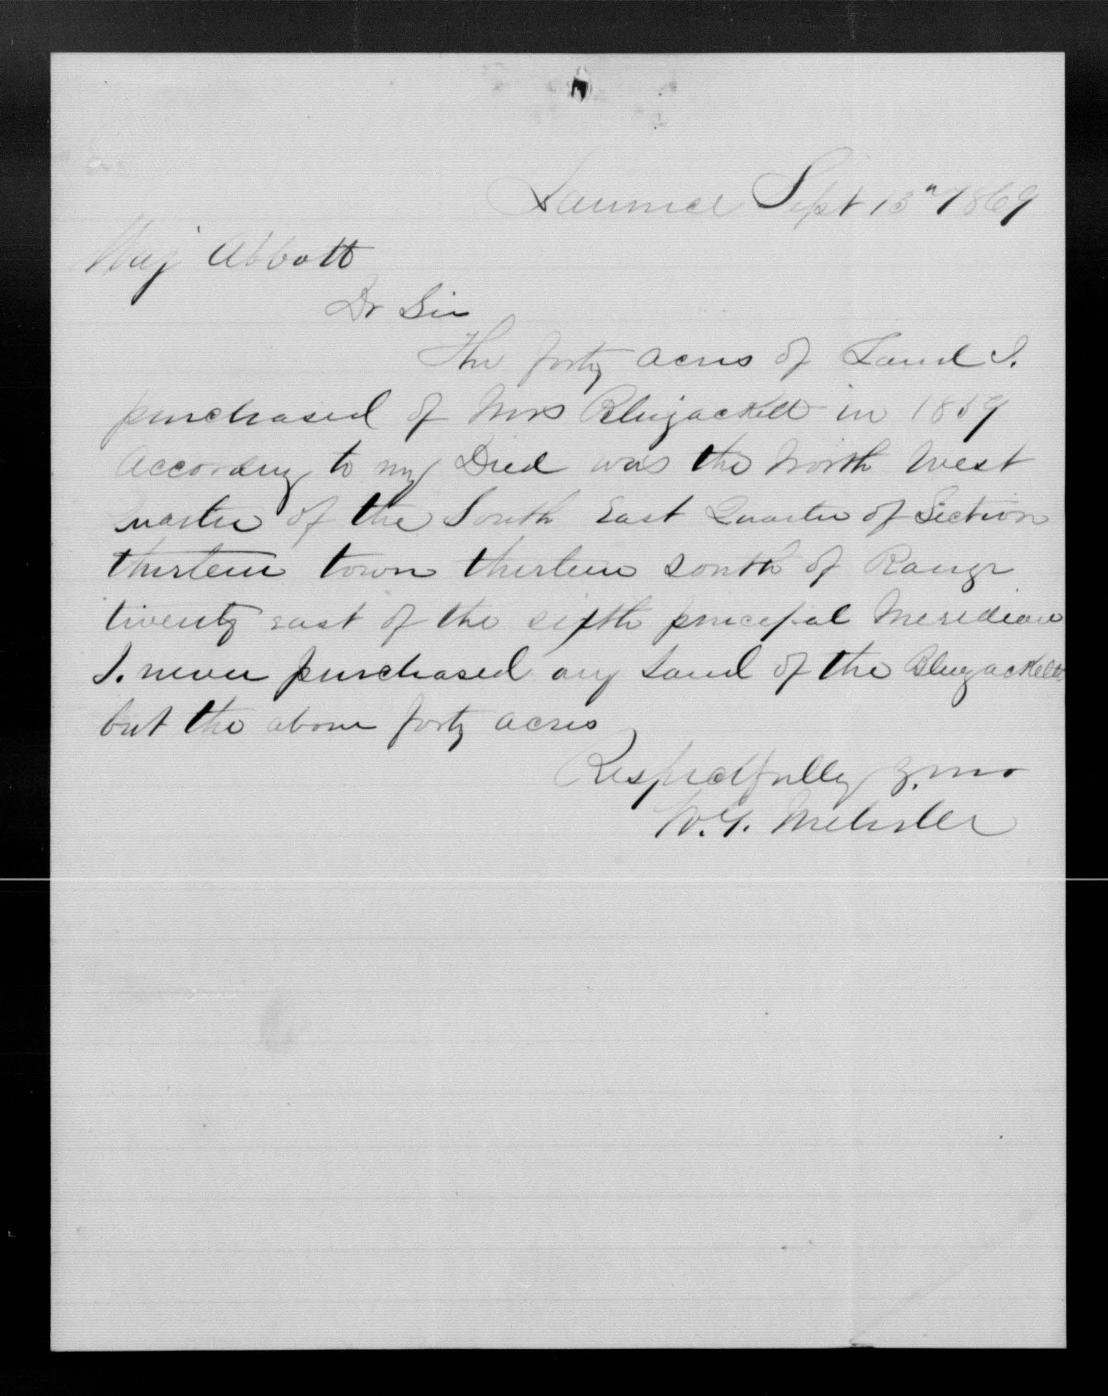 Lawrence Sept 13" 1869
Maj Abbott
Dr Sir
The forty acres of Land I.
purchased of Mrs Blujackett in 1859
According to my Deed was the North West
Quarter of the South East Quarter of Section
thirteen town thirteen South of Range
twenty east of the sixth princepal Meridian
I. never purchased any Land of the Blujacketts
but the above forty acres
Respectfully yours
W. Y.